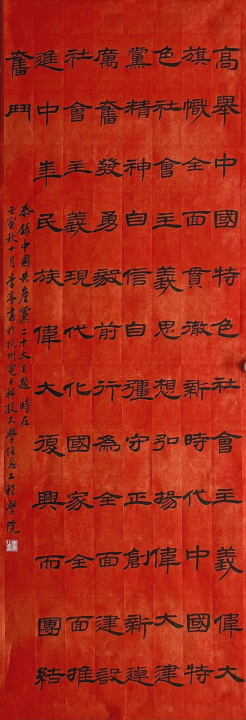 高舉中國特色社會主義偉大
旗幟全面貫徹新時代中國特
色社會主義思想弘揚偉大建
黨精神自信自彊守正創新踔
厲奮發勇毅前行為全面建設
社會主義現代化國家全面推
進中華民族偉大復興而團結
奮鬥
恭錄中國共產黨二十大主題時在
壬寅秋十月書於杭州電子科技大學信息工程學院